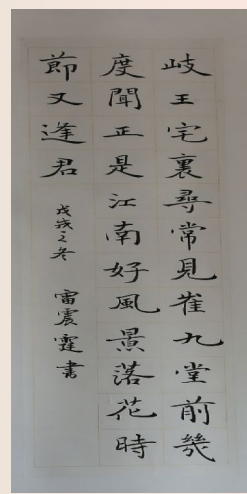 岐王宅裏尋常見崔九堂前幾
度聞正是江南好風景落花時
節又逢君
戊戌之冬 雷震霆書